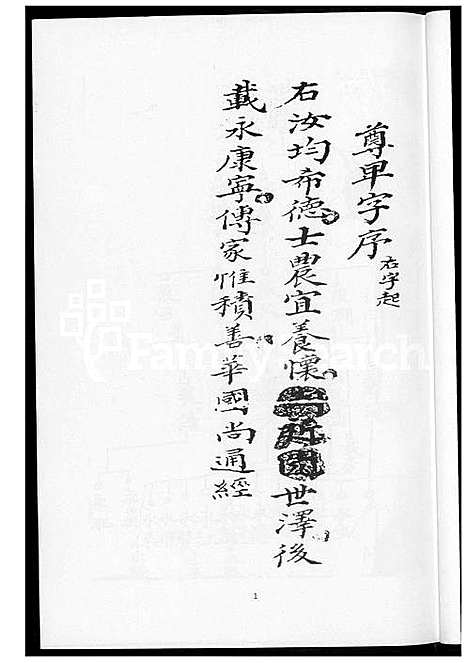 尊卑字序 右字起
右汝均希德士農宜養懷世澤後
載永康寧傳家惟積善華國尚通經
FamilySearch
1